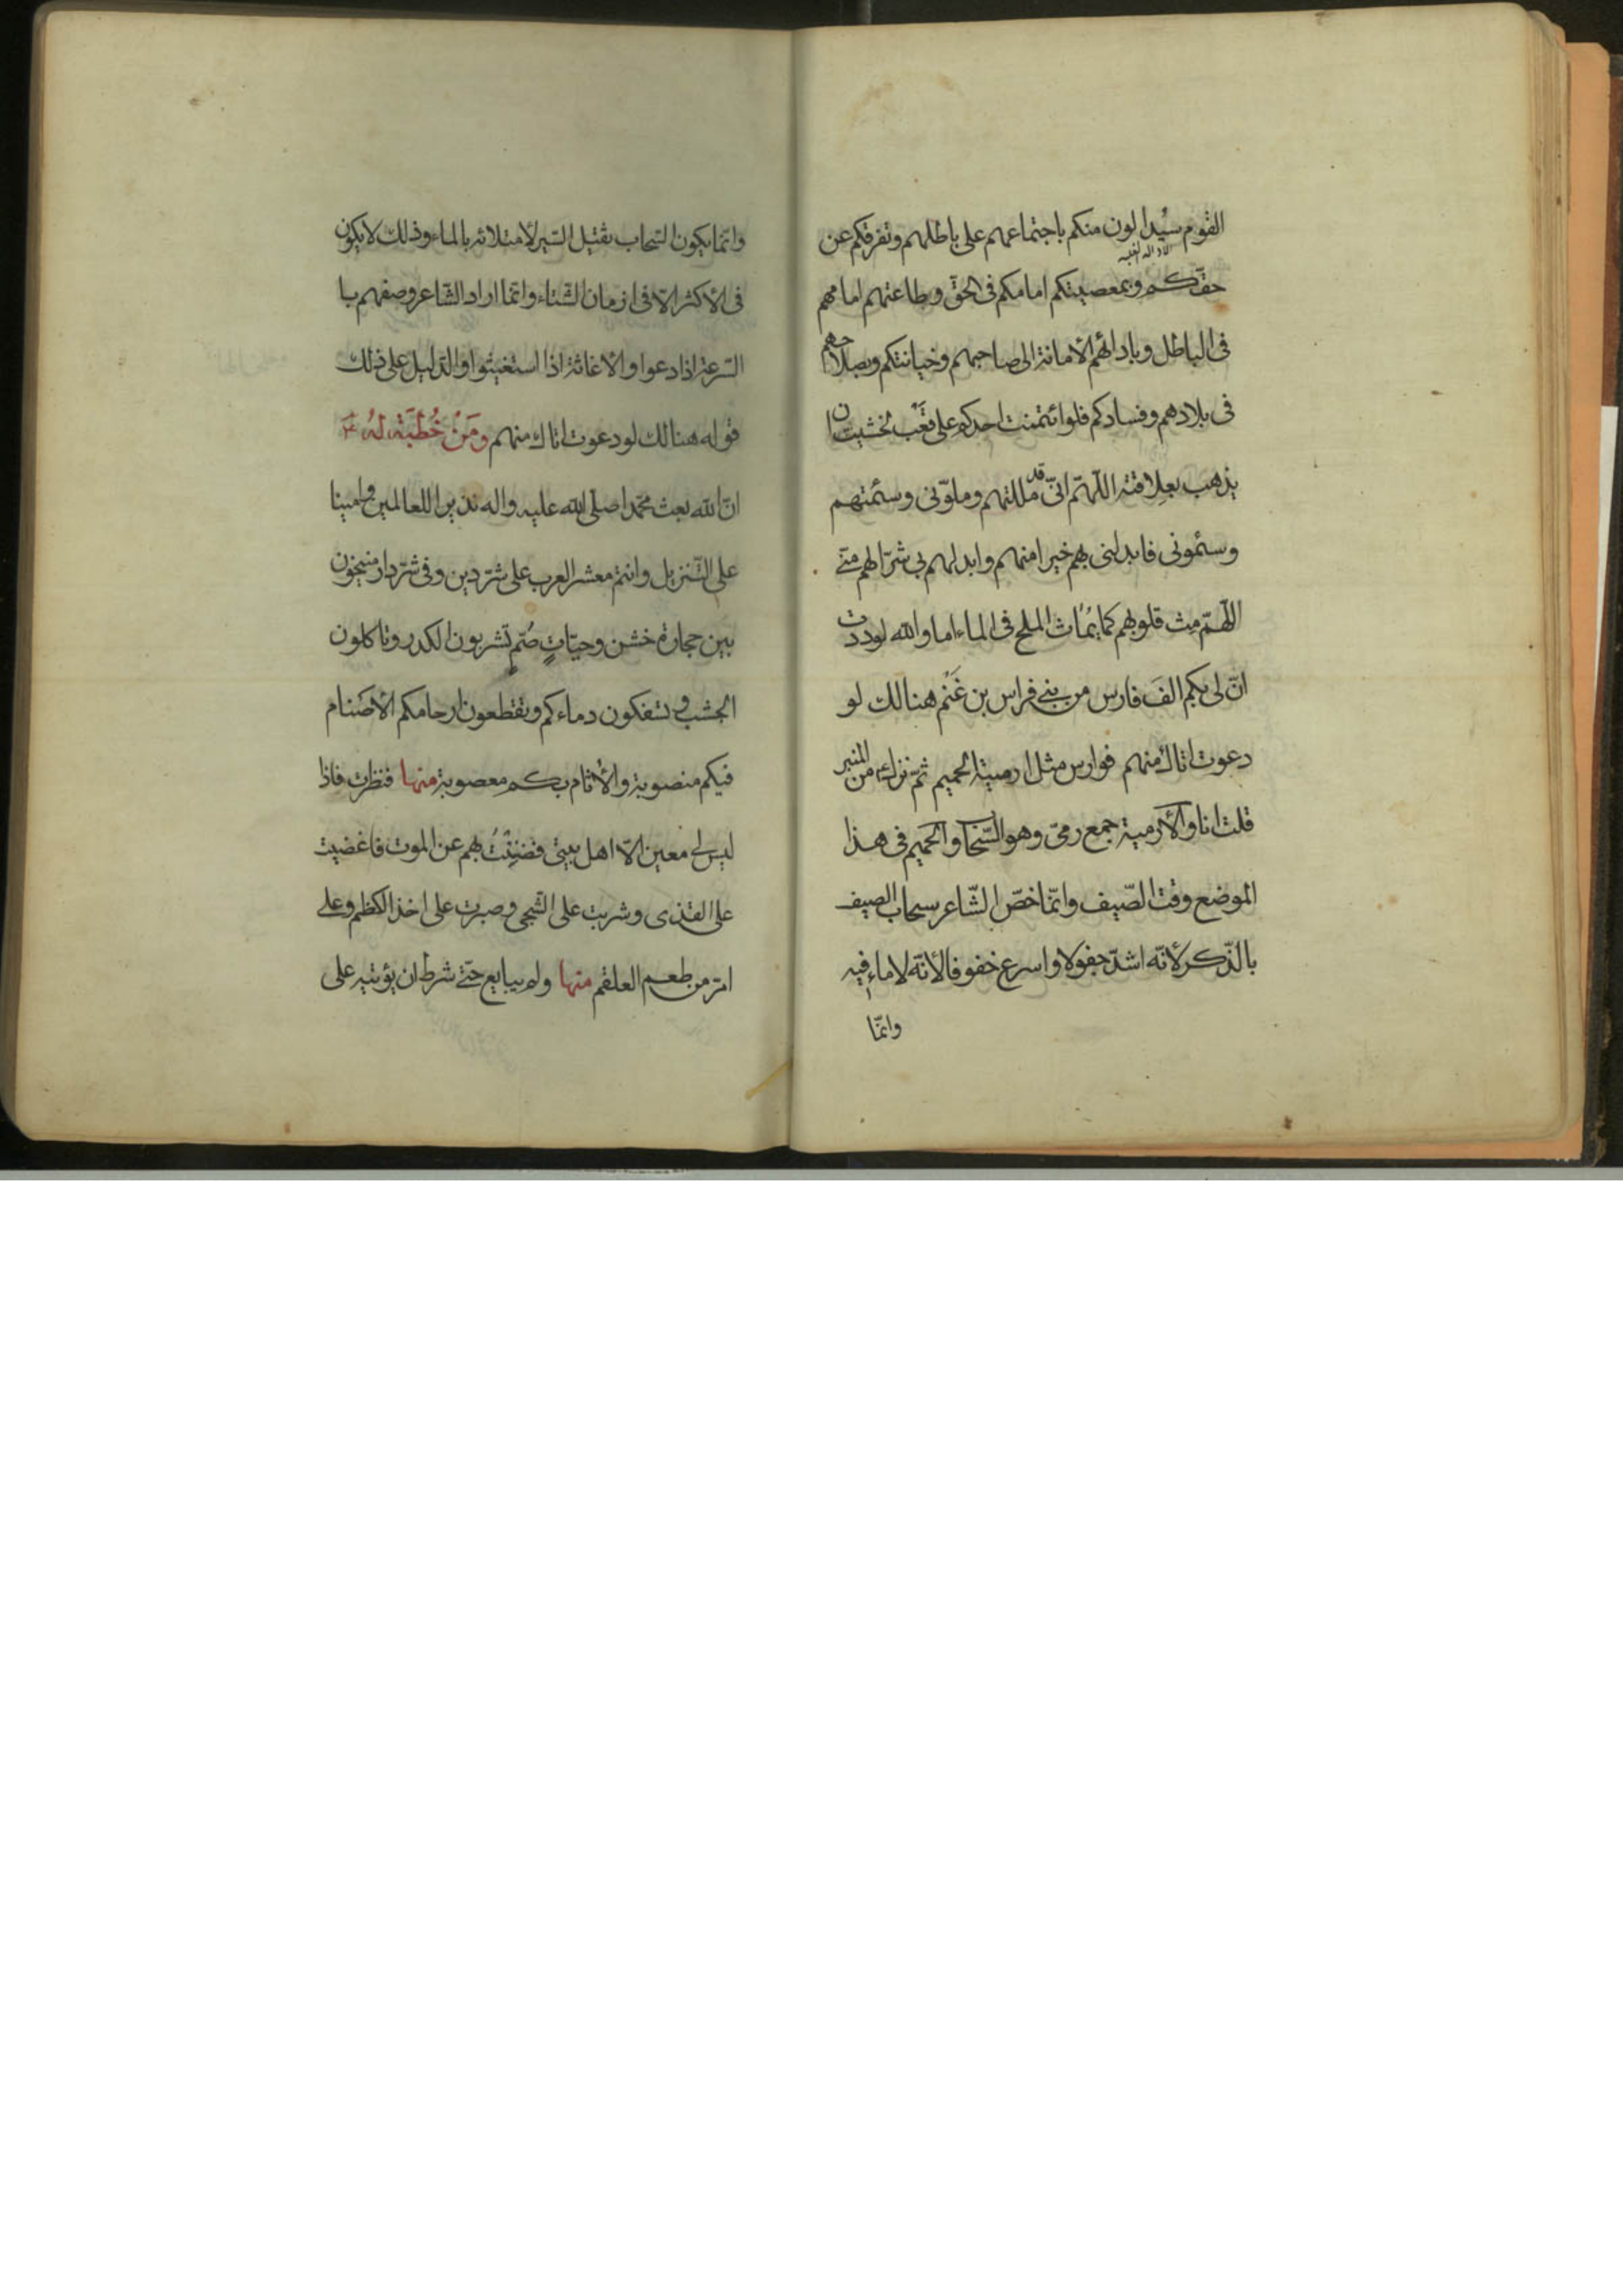 القوم سيُدالون منكم باجتماعهم على باطلهم وتفرقكم عن
حقّكم وبمعصيتكم امامكم فى الحقّ وبطاعتهم امامهم
فى الباطل وبادائهم الأمانة الى صاحبهم وخيانتكم وبصلاحهم
فى بلادهم وفسادكم فلو ائتمنت احدكم على قَعْب لخشيت ان
يذهب بعِلاقته اللّهمّ انّى قد مللتهم وملوّنى وسئمتهم
وسئمونى فابدلنى بهم خيرا منهم وابدلهم بى شرّا لهم منّى
اللّهمّ مِث قلوبهم كما يُمَاث الملح فى الماء اما والله لوددت
انّ لى بكم الفَ فارس من بنى فراس بن غَنْم هنالك لو
دعوت اتاك منهم فوارس مثل ارمية الحميم ثمّ نزل ع من المنبر
قلت انا والأرمية جمع رمىّ وهو السّحاب والحميم فى هذا
الموضع وقت الصّيف وانّما خصّ الشّاعر سحاب الصيف
بالذّكر لأنّه اشدّ جفولا واسرع خفوفا لأنّه لا ماء فيه
وانّما
وانّما يكون السّحاب ثقيل السّير لامتلائه بالماء وذلك لا يكون
فى الأكثر الّا فى ازمان الشّتاء وانّما اراد الشّاعر وصفهم با
السّرعة اذا دعوا والاغاثة اذا استغيثوا والدّليل على ذلك
قوله هنالك لو دعوت اتاك منهم ومَنْ خُطْبَة لَهُ ع
انّ الله بعث محمّدا صلّى الله عليه واله نذيرا للعالمين وامينا
على التّنزيل وانتم معشر العرب على شرّ دين وفى شرّ دار منيخون
بين حجارة خشن وحيّاتٍ صُمّ تشربون الكدر وتاكلون
الجشب وتسفكون دماءكم وتقطعون ارحامكم الأصنام
فيكم منصوبة والأثام بكم معصوبة منها فنظرت فاذا
ليس لى معين الّا اهل بيتى فضنِنْتُ بهم عن الموت فاغضيت
على القذى وشربت على الشّجى وصبرت على اخذ الكظم وعلى
امرّ من طعم العلقم منها ولم يبايع حتّى شرط ان يؤتيه على